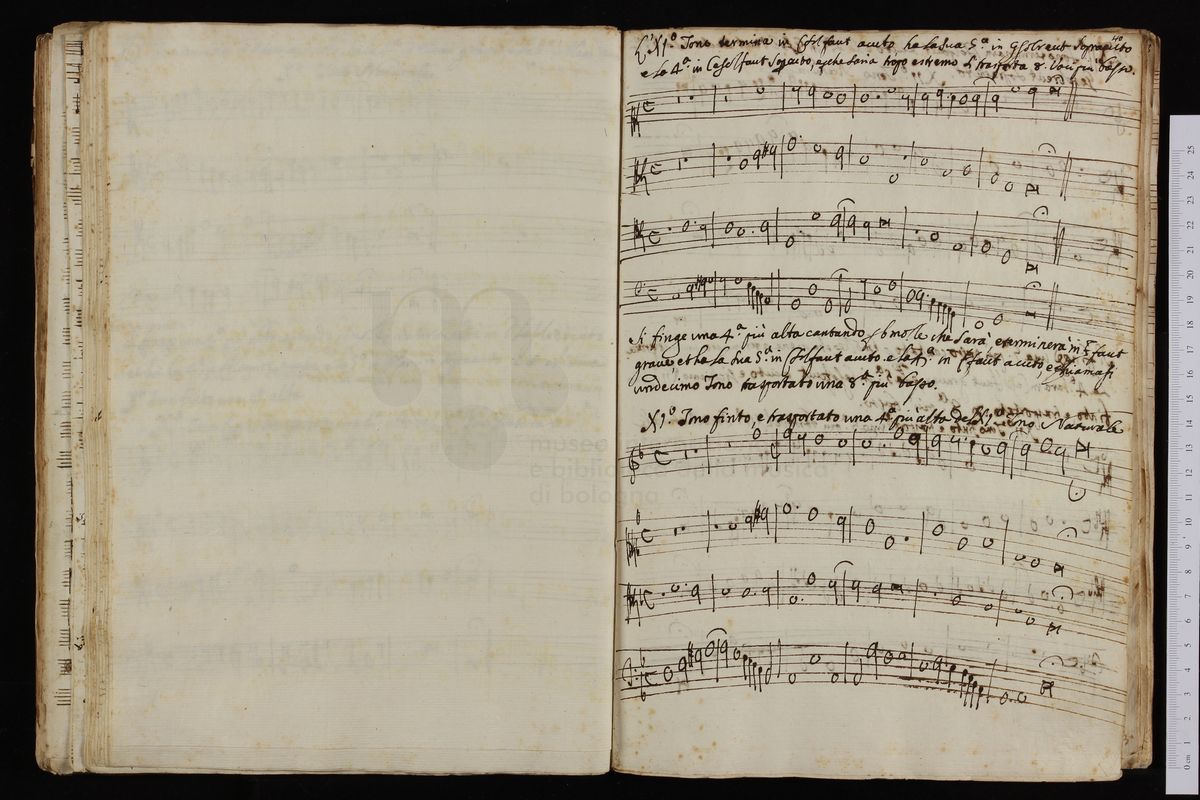 40
L'XI.º Tono termina in Csolfaut acuto ha la sua 5.ª in Gsolreut Sopracuto
e la 4.ª in Csolfaut Sopracuto, e che saria tropo estremo si trasporta 8. Voci più basso.
Si finge una 4.ª più alta cantando p bmolle che sarà, e terminerà in Ffaut
grave, et ha la sua 5.ª in Csolfaut acuto e la 4.ª in Ffaut acuto e chiamasi
undecimo Tono trasportato una 8.ª più basso.
XI.º Tono finto, e trasportato una 4.ª più alto del XI.º Tono Naturale
museo
e biblioteca della musica
di bologna
0 cm 1 2 3 4 5 6 7 8 9 10 11 12 13 14 15 16 17 18 19 20 21 22 23 24 25